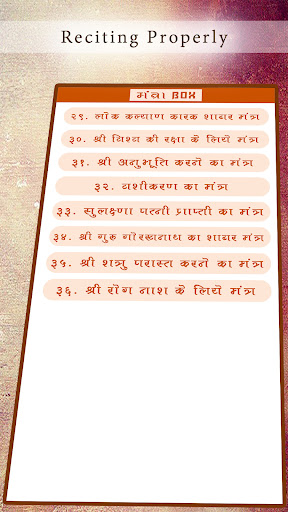 Reciting Properly
मंत्रा BOX
२९. लोक कल्याण कारक शाबर मंत्र
३०. श्री विश्व की रक्षा के लिये मंत्र
३१. श्री अनुभूति करने का मंत्र
३२. वशीकरण का मंत्र
३३. सुलक्षणा पत्नी प्राप्ती का मंत्र
३४. श्री गुरु गोरखनाथ का शाबर मंत्र
३५. श्री शत्रु परास्त करने का मंत्र
३६. श्री रोग नाश के लिये मंत्र